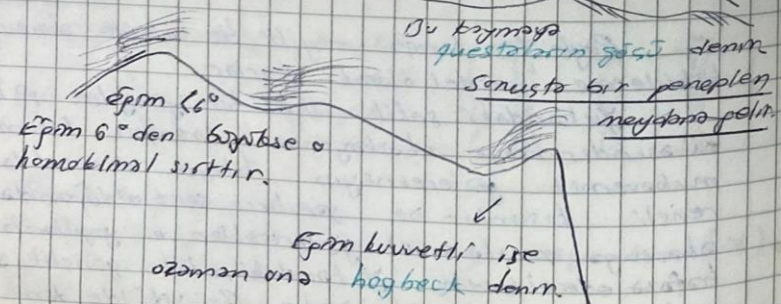 Bu kaymaya
questaların göçü denir
Sonuçta bir peneplen
meydana gelir.
Eğim <6°
Eğim 6° den büyükse o
homoklinal sırttır.
Eğim kuvvetli ise
ozaman ona hogback denir.